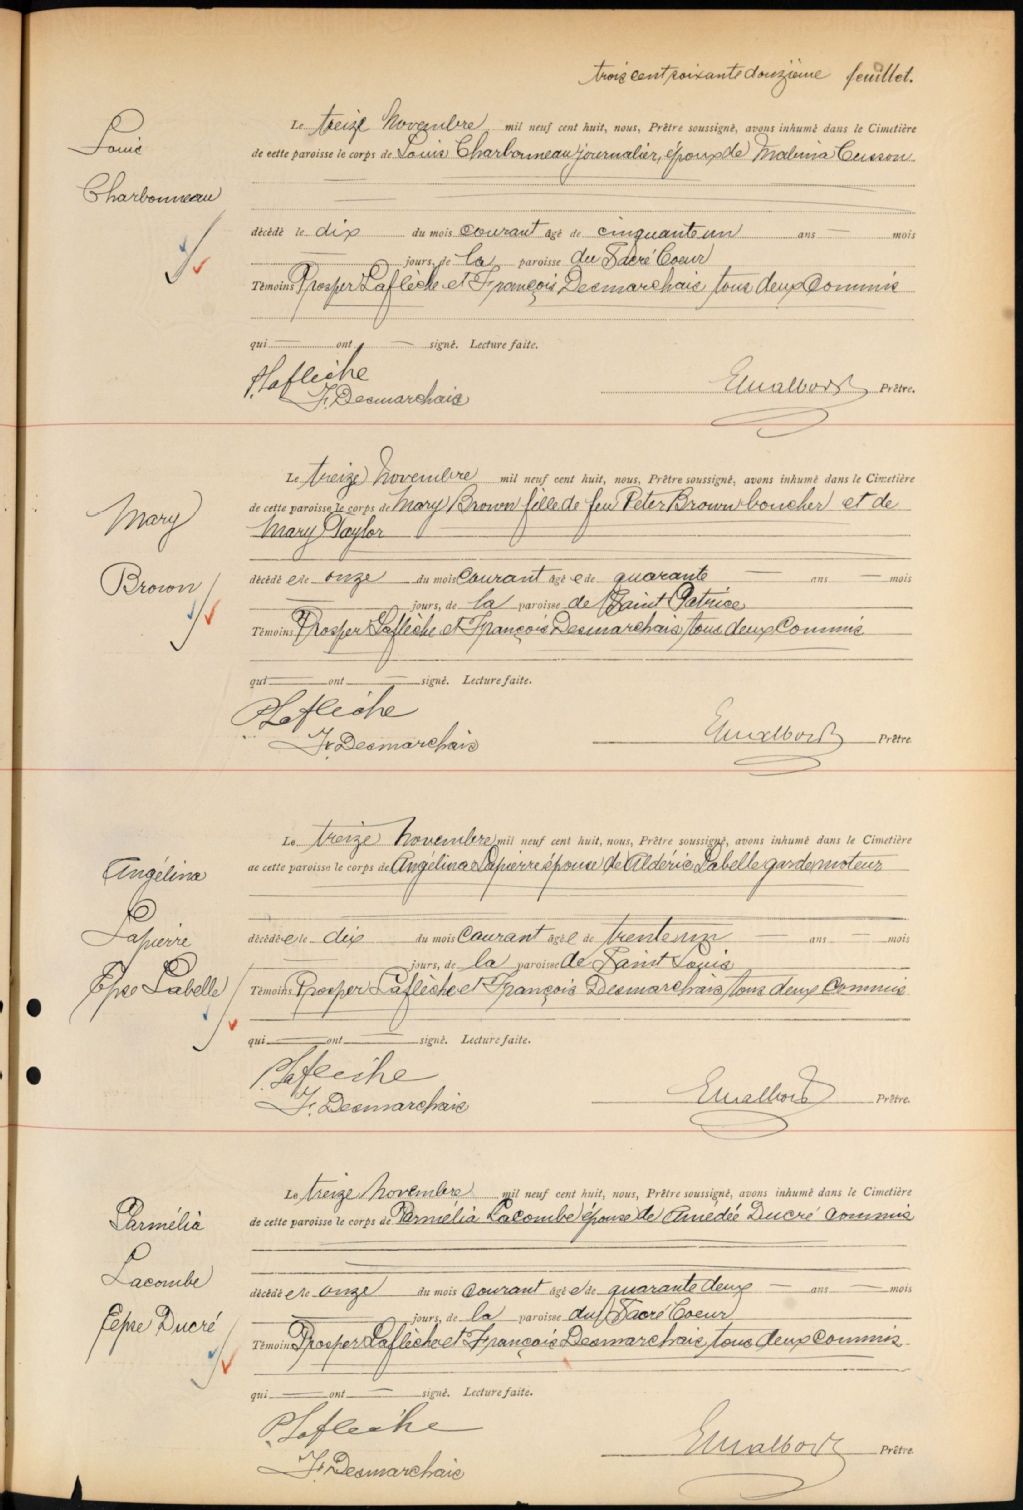 trois cent soixante douzième feuillet.
Louis
Charbonneau
Le treize Novembre mil neuf cent huit, nous, Prêtre soussigné, avons inhumé dans le Cimetière
de cette paroisse le corps de Louis Charbonneau journalier, époux de Malvina Cusson
décédé le dix du mois courant âgé de cinquante un ans — mois
— jours, de la paroisse du Sacré Coeur
Témoins Prosper Laflèche et François Desmarchais tous deux Commis
qui — ont — signé. Lecture faite.
P. Laflèche
F. Desmarchais
Prêtre.
Mary
Brown
Le treize Novembre mil neuf cent huit, nous, Prêtre soussigné, avons inhumé dans le Cimetière
de cette paroisse le corps de Mary Brown fille de feu Peter Brown boucher et de
Mary Taylor
décédée le onze du mois Courant âgée de quarante — ans — mois
— jours, de la paroisse de Saint Patrice
Témoins Prosper Laflèche et François Desmarchais tous deux Commis
qui — ont — signé. Lecture faite.
P. Laflèche
F. Desmarchais
Prêtre
Angélina
Lapierre
Epse Labelle
Le treize Novembre mil neuf cent huit, nous, Prêtre soussigné, avons inhumé dans le Cimetière
de cette paroisse le corps de Angélina Lapierre épouse de Aldéric Labelle garde moteur
décédée le dix du mois Courant âgée de trente un — ans — mois
— jours, de la paroisse de Saint Louis
Témoins Prosper Laflèche et François Desmarchais tous deux Commis
qui — ont — signé. Lecture faite.
P. Laflèche
F. Desmarchais
Prêtre.
Parmélia
Lacombe
Epse Ducré
Le treize Novembre mil neuf cent huit, nous, Prêtre soussigné, avons inhumé dans le Cimetière
de cette paroisse le corps de Parmélia Lacombe épouse de Amédée Ducré commis
décédée le onze du mois Courant âgée de quarante deux — ans — mois
— jours, de la paroisse du Sacré Coeur
Témoins Prosper Laflèche et François Desmarchais tous deux commis
qui — ont — signé. Lecture faite.
P. Laflèche
F. Desmarchais
Prêtre